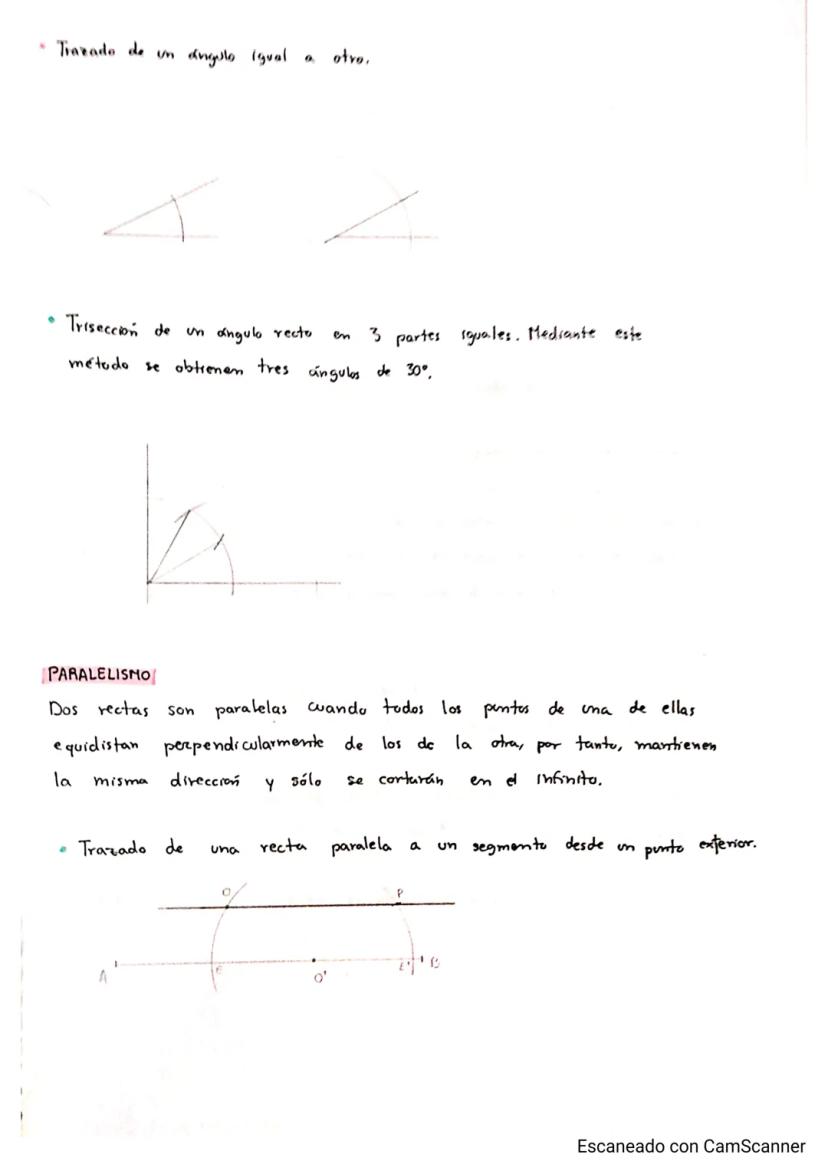 Trazado de un ángulo igual a otro.
Trisección de un ángulo recto en 3 partes iguales. Mediante este
método se obtienen tres ángulos de 30º.
PARALELISMO
Dos rectas son paralelas cuando todos los puntos de una de ellas
equidistan perpendicularmente de los de la otra, por tanto, mantienen
la misma dirección y sólo se cortarán en el infinito.
Trazado de una recta paralela a un segmento desde un punto exterior.
O P
A E O' E' B
Escaneado con CamScanner